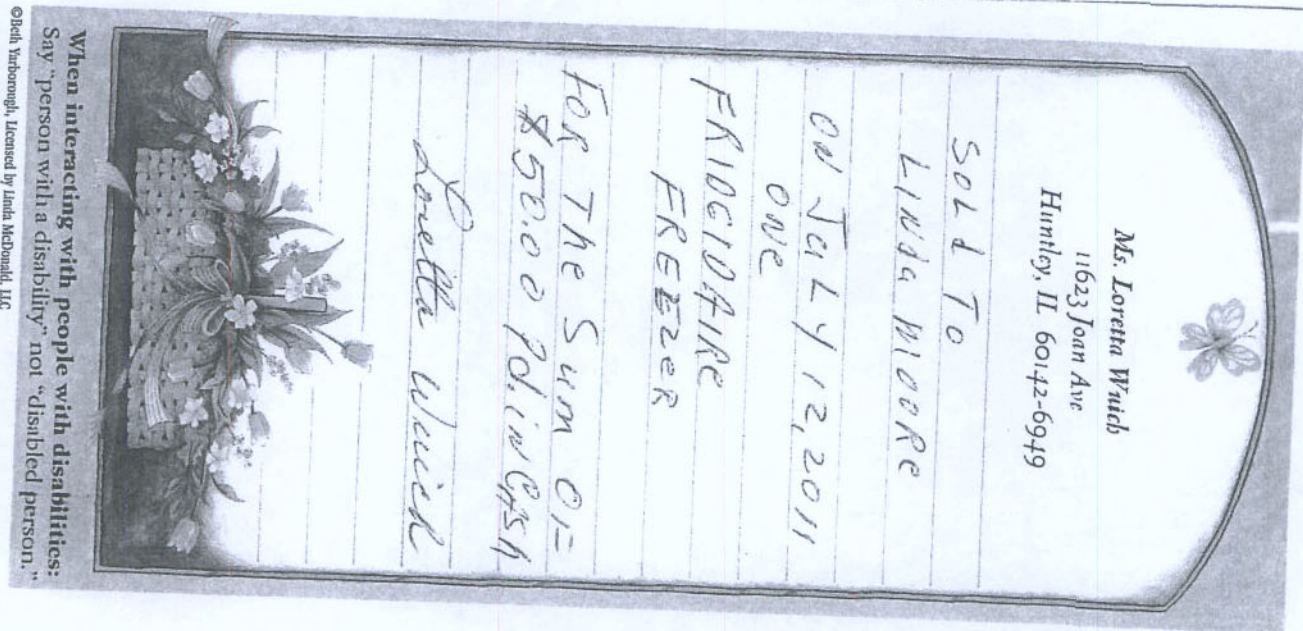 Ms. Loretta Wuich
11623 Joan Ave
Huntley, IL 60142-6949
SOLd To
LINda MOORe
ON JuLY 12, 2011
ONE
FRIDGIDAIRE
FREEZER
FOR The Sum OF
$50.00 Pd. in CASH
Loretta Wuich
When interacting with people with disabilities:
Say "person with a disability" not "disabled person."
©Beth Yarborough, Licensed by Linda McDonald, LLC